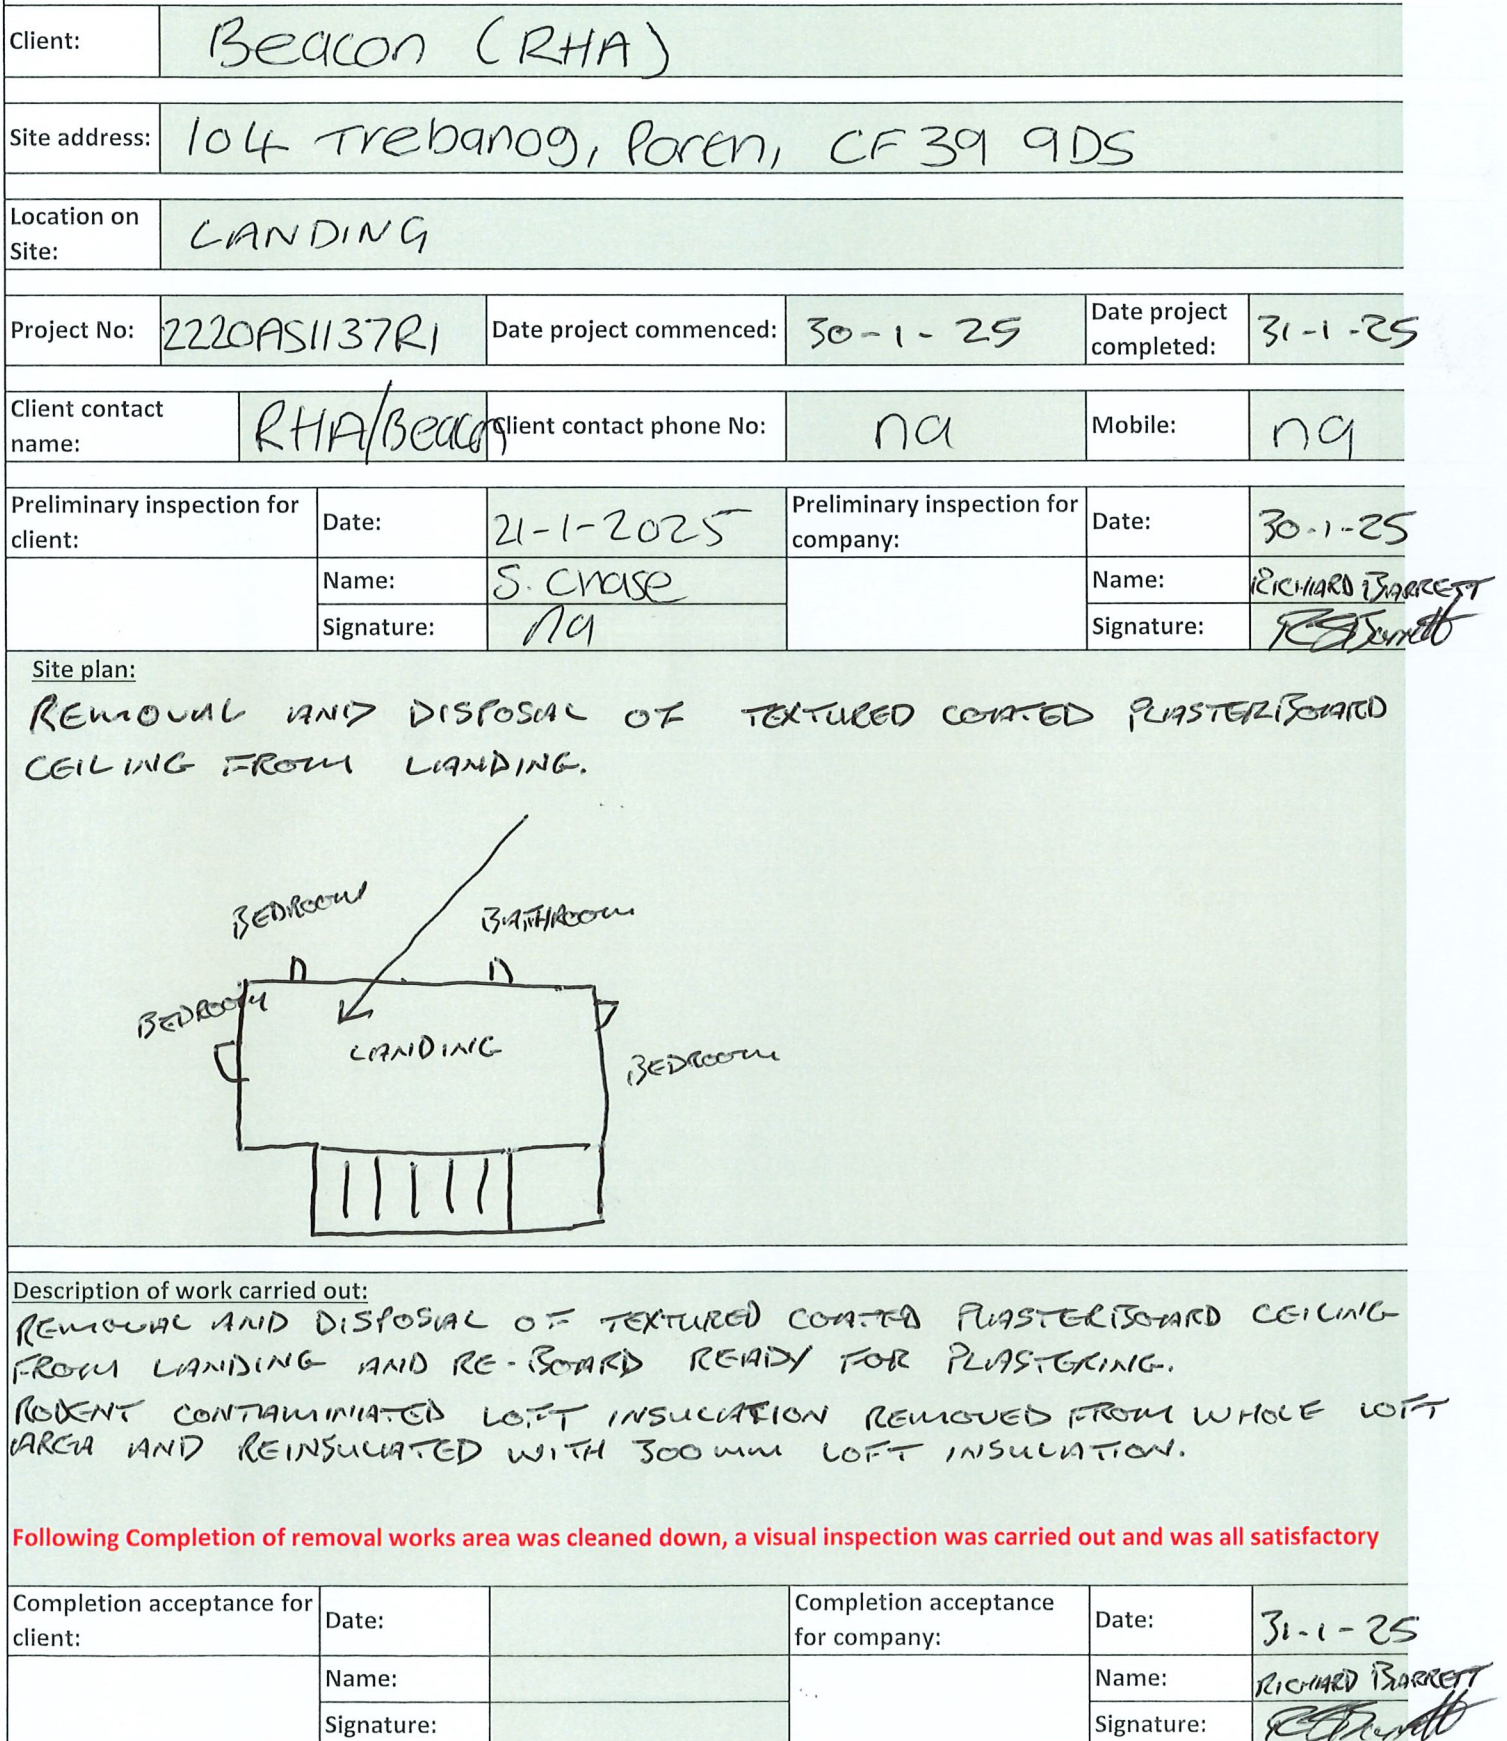 Client: Beacon (RHA)
Site address: 104 Trebanog, Poren, CF39 9DS
Location on Site: LANDING
Project No: 2220AS1137R1 Date project commenced: 30-1-25 Date project completed: 31-1-25
Client contact name: RHA/Beacon Client contact phone No: na Mobile: na
Preliminary inspection for client: Date: 21-1-2025 Preliminary inspection for company: Date: 30-1-25
Name: S. Chase Name: RICHARD BARRETT
Signature: na Signature: RBarrett
Site plan:
REMOVAL AND DISPOSAL OF TEXTURED COATED PLASTERBOARD
CEILING FROM LANDING.
BEDROOM BATHROOM
BEDROOM
LANDING
BEDROOM
Description of work carried out:
REMOVAL AND DISPOSAL OF TEXTURED COATED PLASTERBOARD CEILING
FROM LANDING AND RE-BOARD READY FOR PLASTERING.
RODENT CONTAMINATED LOFT INSULATION REMOVED FROM WHOLE LOFT
AREA AND REINSULATED WITH 300mm LOFT INSULATION.
Following Completion of removal works area was cleaned down, a visual inspection was carried out and was all satisfactory
Completion acceptance for client: Date: Completion acceptance for company: Date: 31-1-25
Name: Name: RICHARD BARRETT
Signature: Signature: